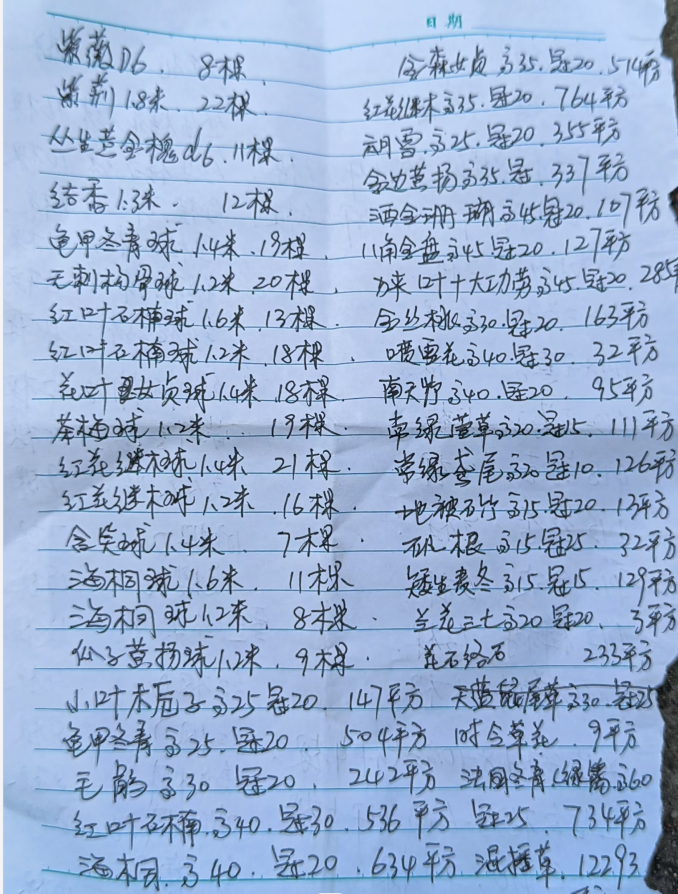 日期
紫薇D6. 8棵
紫荆1.8米. 22棵
丛生黄金槐d6. 11棵.
结香1.3米. 12棵.
龟甲冬青球1.4米. 19棵.
无刺枸骨球1.2米. 20棵.
红叶石楠球1.6米. 13棵.
红叶石楠球1.2米. 18棵.
花叶女贞球1.4米. 18棵.
茶梅球1.2米. 19棵.
红花继木球1.4米. 21棵
红花继木球1.2米. 16棵.
含笑球1.4米. 7棵.
海桐球1.6米. 11棵
海桐球1.2米. 8棵.
瓜子黄扬球1.2米. 9棵.
小叶木栀子高25冠20. 147平方
龟甲冬青高25.冠20. 504平方
毛鹃高30 冠20. 242平方
红叶石楠.高40.冠30. 536平方
海桐.高40.冠20. 634平方
金森女贞高35.冠20. 514平方
红花继木高35.冠20. 764平方
高25.冠20. 355平方
金边黄扬高35.冠. 337平方
洒金珊瑚高45冠20. 107平方
八角金盘高45冠20. 127平方
叶十大功劳高45.冠20. 285平
金丝桃高30.冠20. 163平方
喷雪花高40.冠30 32平方
南天竹高40.冠20. 95平方
常绿萱草高20.冠15. 111平方
常绿鸢尾高20冠10. 126平方
地被石竹高15.冠20. 13平方
根高15.冠25. 32平方
矮生麦冬高15.冠15. 129平方
兰花三七高20冠20. 3平方
花石络石 233平方
天蓝鼠尾草高30.冠25
时令草花. 9平方
法国冬青(绿篱高60
冠25. 734平方
混播草. 12293
平方